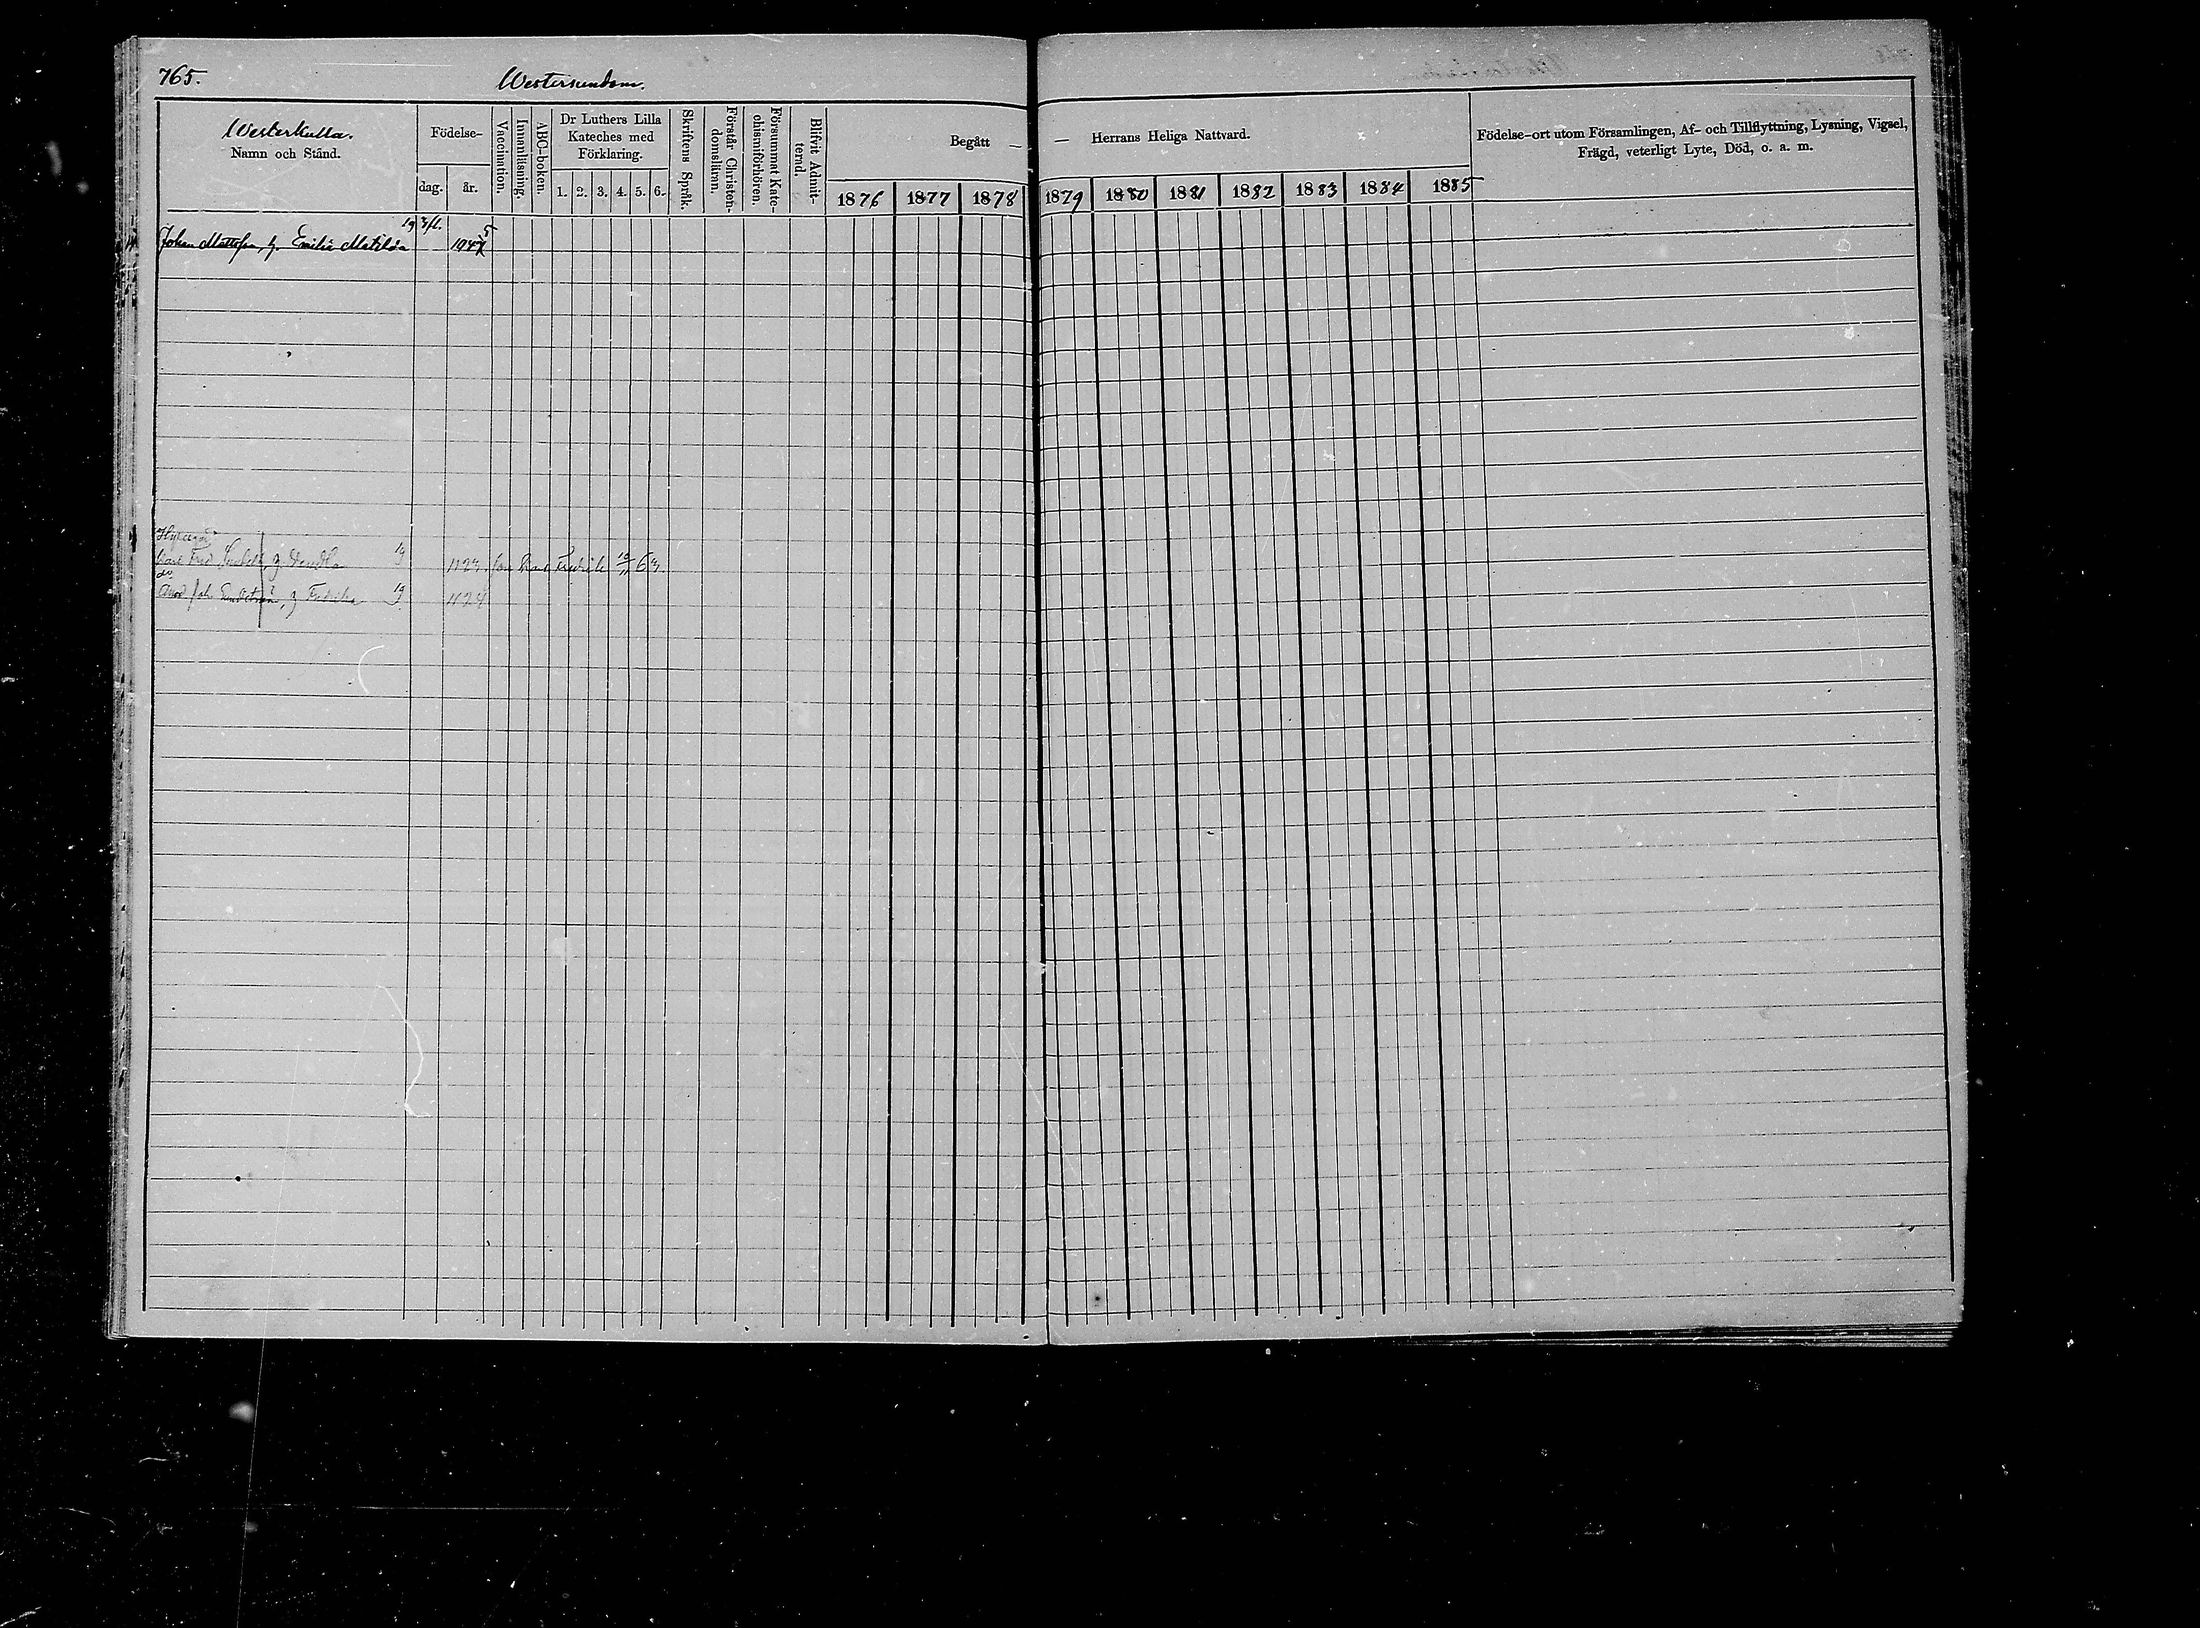 765.
Westersundom.
Westerkulla.
Namn och Stånd.
Födelse-
dag.
år.
Vaccination.
Innanläsning.
ABC-boken.
Dr Luthers Lilla
Kateches med
Förklaring.
1. 2. 3. 4. 5. 6.
Skriftens Språk.
Förstår Christen-
domsläran.
Försummat Kate-
chismiförhören.
Blifvit Admit-
terad.
Begått —
— Herrans Heliga Nattvard.
1876 1877 1878 1879 1880 1881 1882 1883 1884 1885
Födelse-ort utom Församlingen, Af- och Tillflyttning, Lysning, Vigsel,
Frägd, veterligt Lyte, Död, o. a. m.
Johan Mattsson, h. Emilia Matilda
Carl Fred. 1123. Fredrik 63.
Fredrika 1124